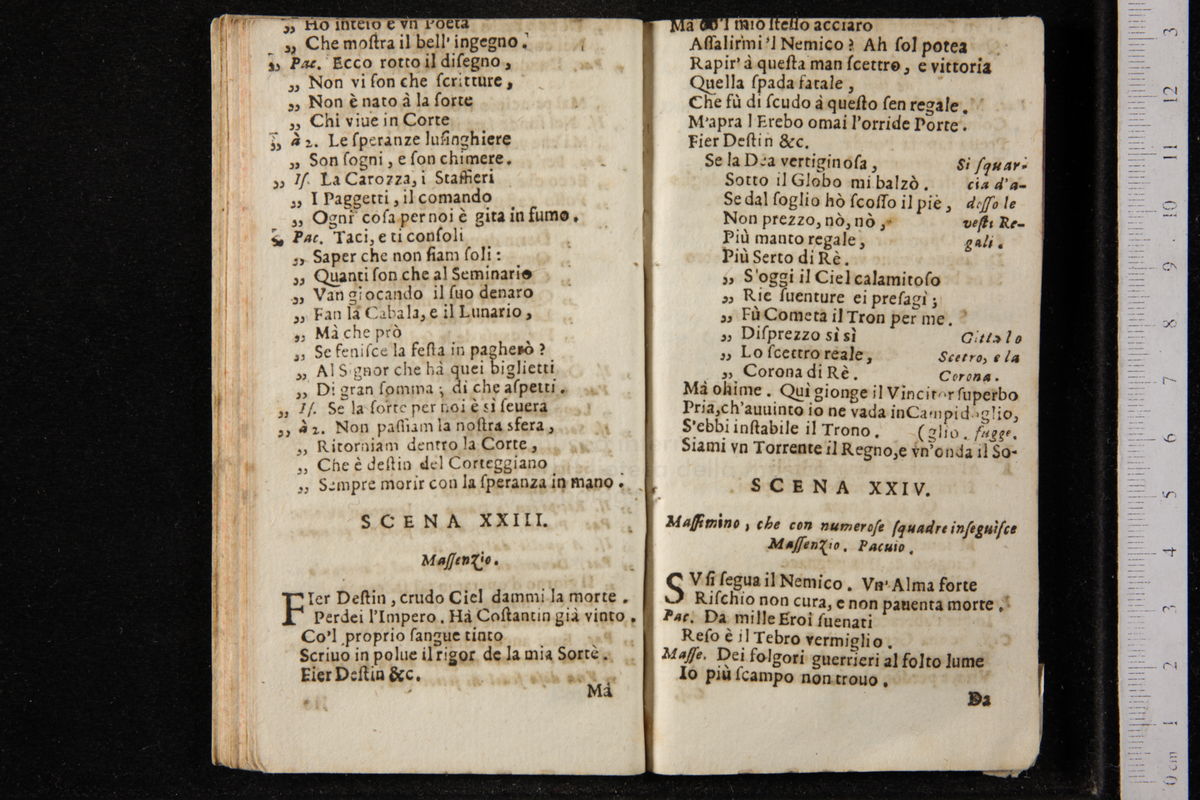 „ Ho inteso è vn Poeta
„ Che moſtra il bell' ingegno.
„ Pac. Ecco rotto il diſegno,
„ Non vi ſon che ſcritture,
„ Non è nato à la ſorte
„ Chi viue in Corte
„ à 2. Le ſperanze luſinghiere
„ Son ſogni, e ſon chimere.
„ Iſ. La Carozza, i Staffieri
„ I Paggetti, il comando
„ Ogni coſa per noi è gita in fumo.
„ Pac. Taci, e ti conſoli
„ Saper che non ſiam ſoli:
„ Quanti ſon che al Seminario
„ Van giocando il ſuo denaro
„ Fan la Cabala, e il Lunario,
„ Mà che prò
„ Se feniſce la feſta in pagherò?
„ Al Signor che hà quei biglietti
„ Di gran ſomma; di che aſpetti.
„ Iſ. Se la ſorte per noi è sì ſeuera
„ à 2. Non paſſiam la noſtra sfera,
„ Ritorniam dentro la Corte,
„ Che è deſtin del Corteggiano
„ Sempre morir con la ſperanza in mano.
SCENA XXIII.
Maſſenzio.
FIer Deſtin, crudo Ciel dammi la morte.
Perdei l'Impero. Hà Coſtantin già vinto.
Co'l proprio ſangue tinto
Scriuo in polue il rigor de la mia Sorte.
Fier Deſtin &c.
Mà
Mà co'l mio ſteſſo acciaro
Aſſalirmi 'l Nemico? Ah ſol potea
Rapir' à queſta man ſcettro, e vittoria
Quella ſpada fatale,
Che fù di ſcudo à queſto ſen regale.
M'apra l Erebo omai l'orride Porte.
Fier Deſtin &c.
Se la Dea vertiginoſa, Si ſquar-
Sotto il Globo mi balzò. cia d'a-
Se dal ſoglio hò ſcoſſo il piè, doſſo le
Non prezzo, nò, nò, veſti Re-
Più manto regale, gali.
Più Serto di Rè.
„ S'oggi il Ciel calamitoſo
„ Rie ſuenture ei preſagì;
„ Fù Cometa il Tron per me.
„ Diſprezzo sì sì Gitta lo
„ Lo ſcettro reale, Scetro, e la
„ Corona di Rè. Corona.
Mà ohime. Quì gionge il Vincitor ſuperbo
Pria, ch'auuinto io ne vada in Campidoglio,
S'ebbi inſtabile il Trono. (glio. fugge.
Siami vn Torrente il Regno, e vn'onda il So-
SCENA XXIV.
Maſſimino, che con numeroſe ſquadre inſeguiſce
Maſſenzio. Pacuio.
SVſi ſegua il Nemico. Vn' Alma forte
Riſchio non cura, e non pauenta morte.
Pac. Da mille Eroi ſuenati
Reſo è il Tebro vermiglio.
Maſſe. Dei folgori guerrieri al folto lume
Io più ſcampo non trouo.
Da